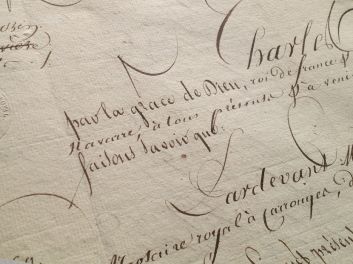 Charles
par la grace de Dieu, roi de france &
navarre, à tous présens & à venir
faisons savoir que.
Pardevant M
Notaire royal à Carrouges, d
présent